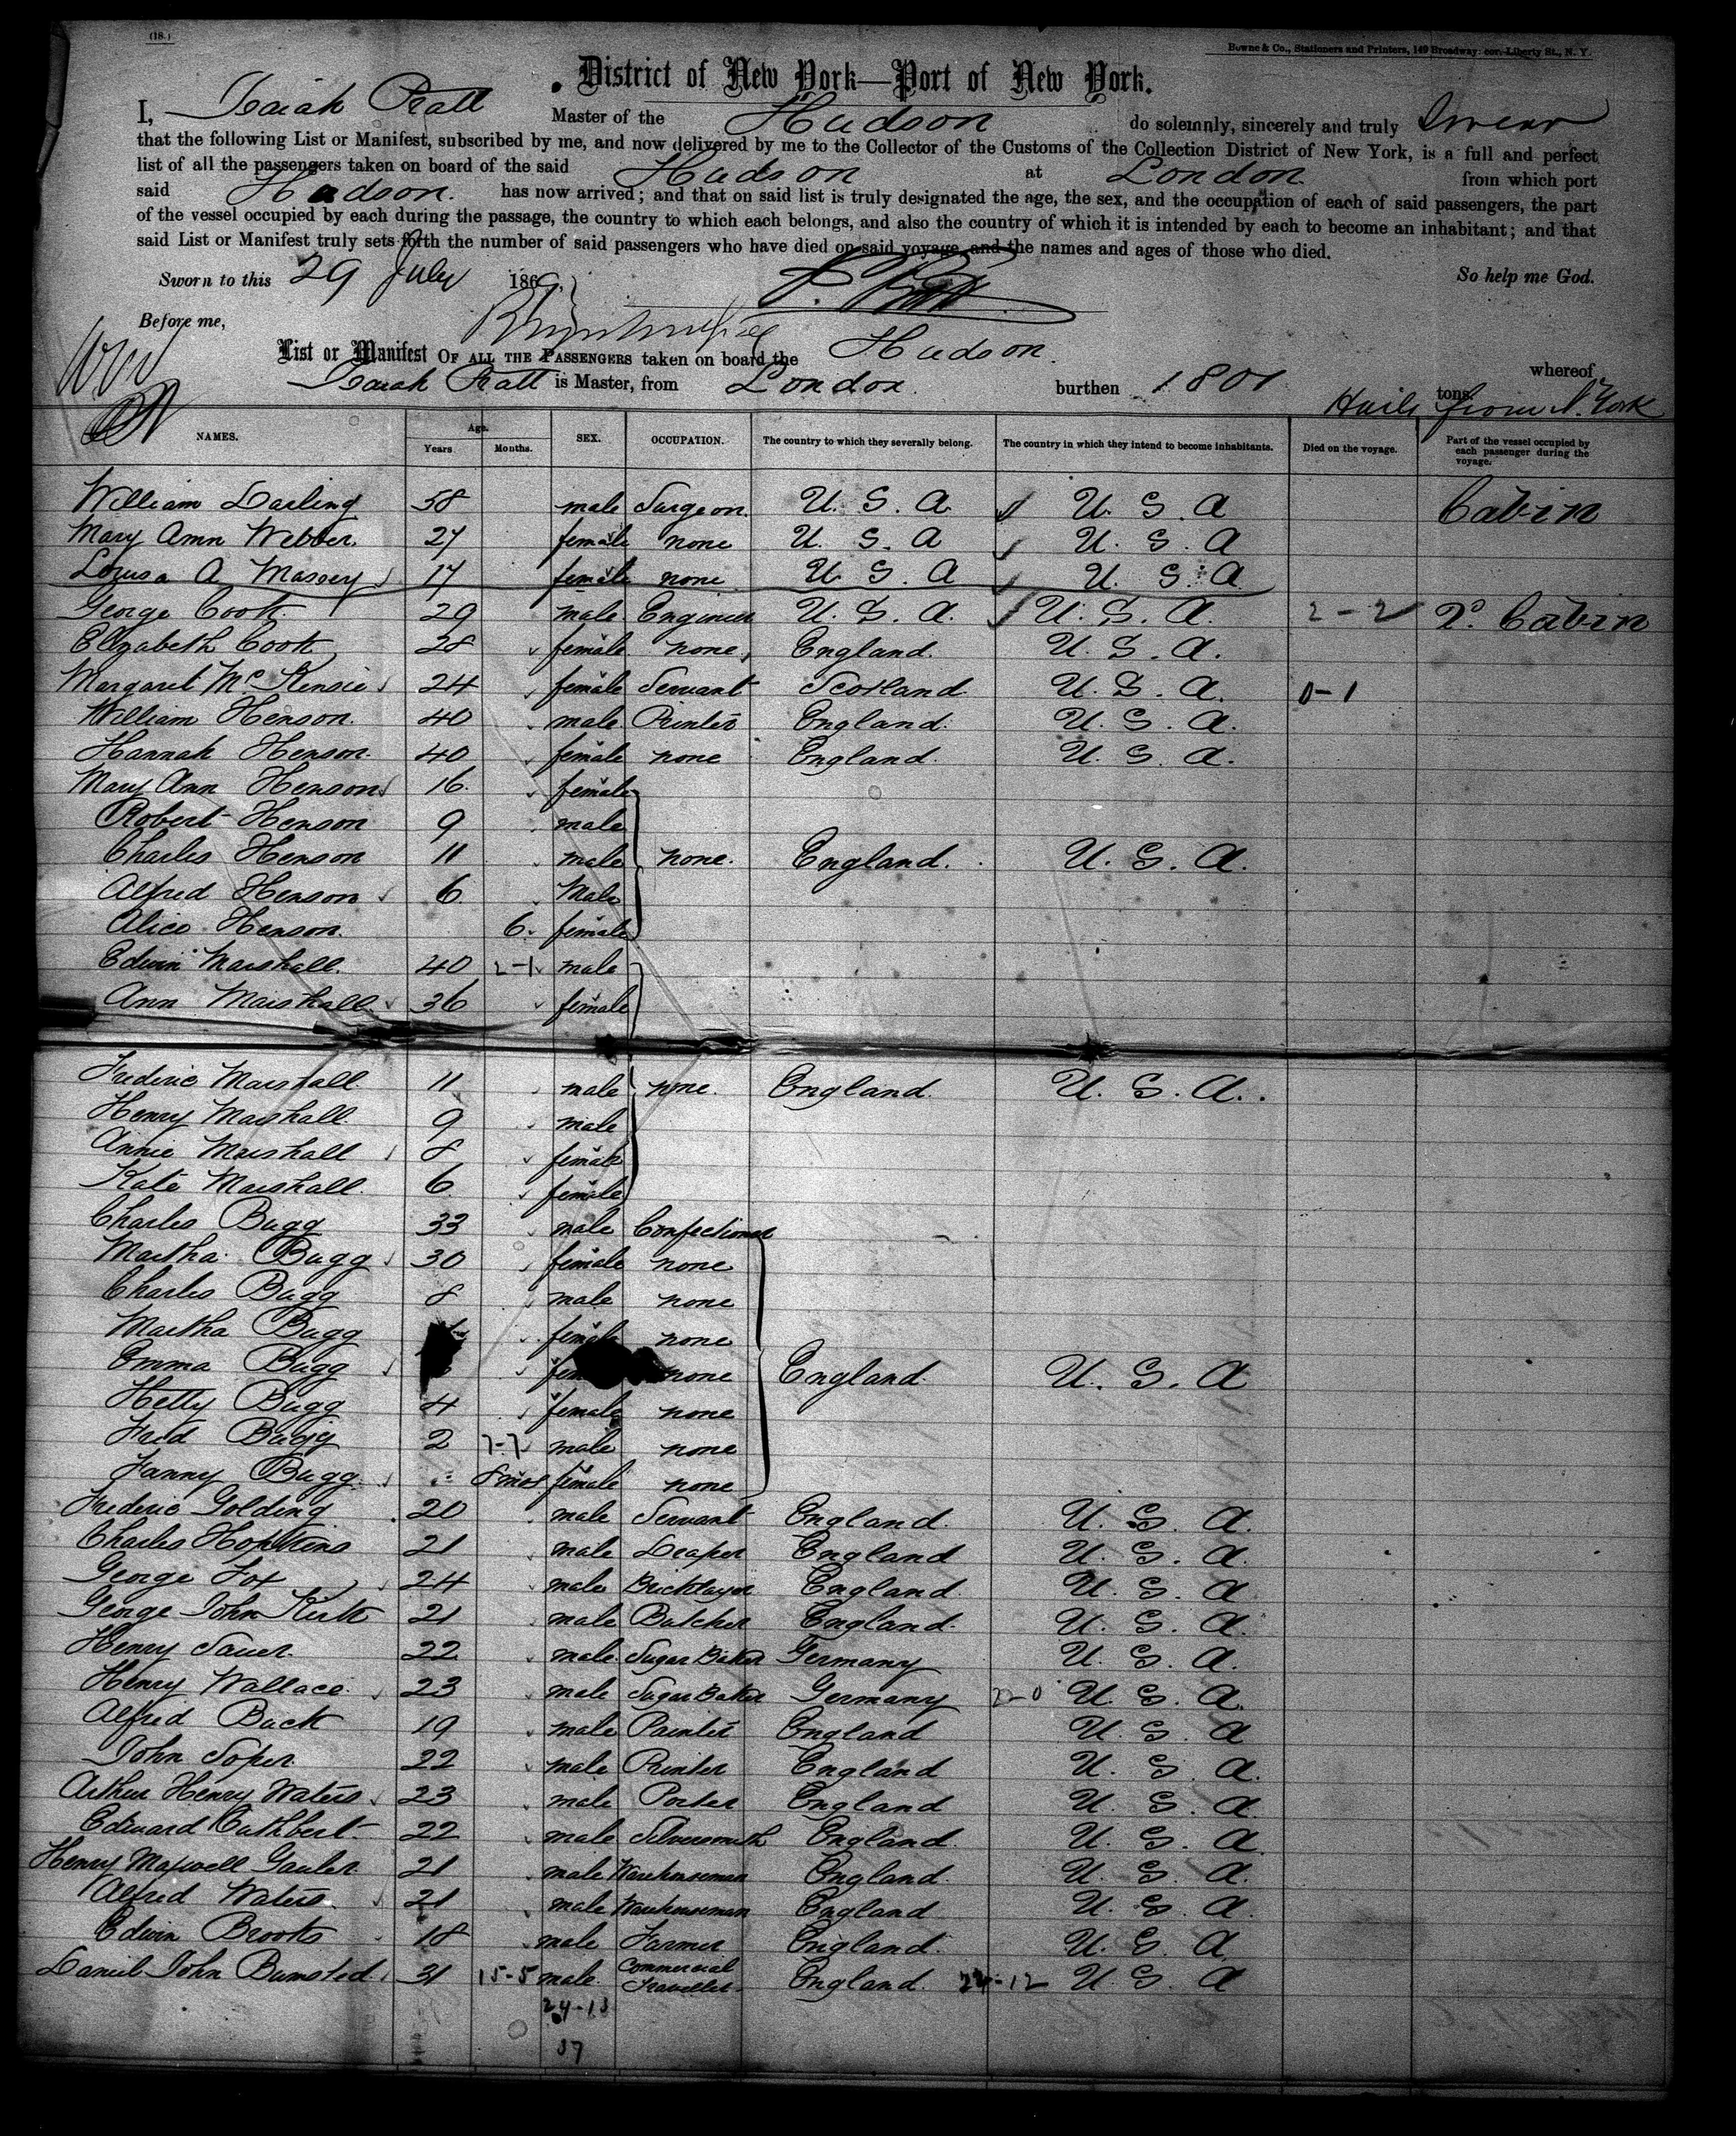 (18.)
Bowne & Co., Stationers and Printers, 149 Broadway: cor. Liberty St., N. Y.
District of New York—Port of New York.
I, Isaiah Pratt Master of the Hudson do solemnly, sincerely and truly Swear
that the following List or Manifest, subscribed by me, and now delivered by me to the Collector of the Customs of the Collection District of New York, is a full and perfect
list of all the passengers taken on board of the said Hudson at London from which port
said Hudson. has now arrived; and that on said list is truly designated the age, the sex, and the occupation of each of said passengers, the part
of the vessel occupied by each during the passage, the country to which each belongs, and also the country of which it is intended by each to become an inhabitant; and that
said List or Manifest truly sets forth the number of said passengers who have died on said voyage, and the names and ages of those who died.
Sworn to this 29 July 1869, So help me God.
I. Pratt
Before me,
List or Manifest OF ALL THE PASSENGERS taken on board the Hudson. whereof
Isaiah Pratt is Master, from London. burthen 1801 tons. Hails from N. York
NAMES. Age. Years Months. SEX. OCCUPATION. The country to which they severally belong. The country in which they intend to become inhabitants. Died on the voyage. Part of the vessel occupied by each passenger during the voyage.
William Darling 58 male Surgeon. U. S. A U. S. A Cabin
Mary Ann Webber. 27 female none U. S. A U. S. A
Louisa A Massey 17 female none U. S. A U. S. A
George Cook. 29 male Engineer U. S. A. U. S. A. 2-2 2d. Cabin
Elizabeth Cook 28 female none, England. U. S. A.
Margaret McKensie 24 female Servant Scotland U. S. A. 0-1
William Henson. 40 male Printer England. U. S. A.
Hannah Henson. 40 female none England. U. S. A.
Mary Ann Henson 16. female
Robert Henson 9 male
Charles Henson 11 male none. England. U. S. A.
Alfred Henson 6 Male
Alice Henson. 6. female
Edwin Marshall. 40 2-1 male
Ann Marshall 36 female
Frederic Marshall 11 male none. England. U. S. A.
Henry Marshall. 9 male
Annie Marshall 8 female
Kate Marshall. 6 female
Charles Bugg 33 male Confectioner
Martha Bugg 30 female none
Charles Bugg 8 male none
Martha Bugg female none
Emma Bugg none England. U. S. A
Hetty Bugg 4 female none
Fred Bugg 2 7-7 male none
Fanny Bugg 8 mos female none
Frederic Golding 20 male Servant England. U. S. A.
Charles Hopkins 21 male Draper England U. S. A.
George Fox 24 male Bricklayer England. U. S. A.
George John Kirk 21 male Butcher England. U. S. A.
Henry Sauer. 22 male Sugar Baker Germany U. S. A.
Henry Wallace. 23 male Sugar Baker Germany 2-0 U. S. A.
Alfred Back 19 male Painter England U. S. A
John Soper. 22 male Printer England U. S. A.
Arthur Henry Waters 23 male Porter England U. S. A
Edward Cuthbert. 22 male Silversmith England. U. S. A.
Henry Maxwell Gauler. 21 male Warehouseman England. U. S. A.
Alfred Waters. 21 male Warehouseman England U. S. A.
Edwin Brooks 18 male Farmer England. U. S. A
Daniel John Bumsted 31 15-5 male. Commercial Traveller. England. 22-12 U. S. A
24-13
37